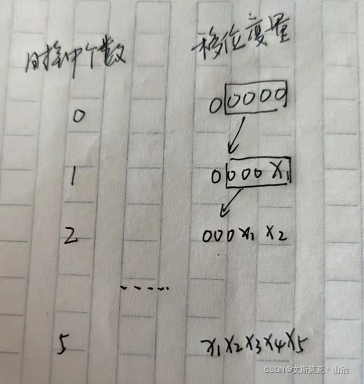 时钟个数 移位变量
0 00000
1 0000X₁
2 000X₁X₂
......
5 X₁X₂X₃X₄X₅
CSDN @文斯莫克·山治